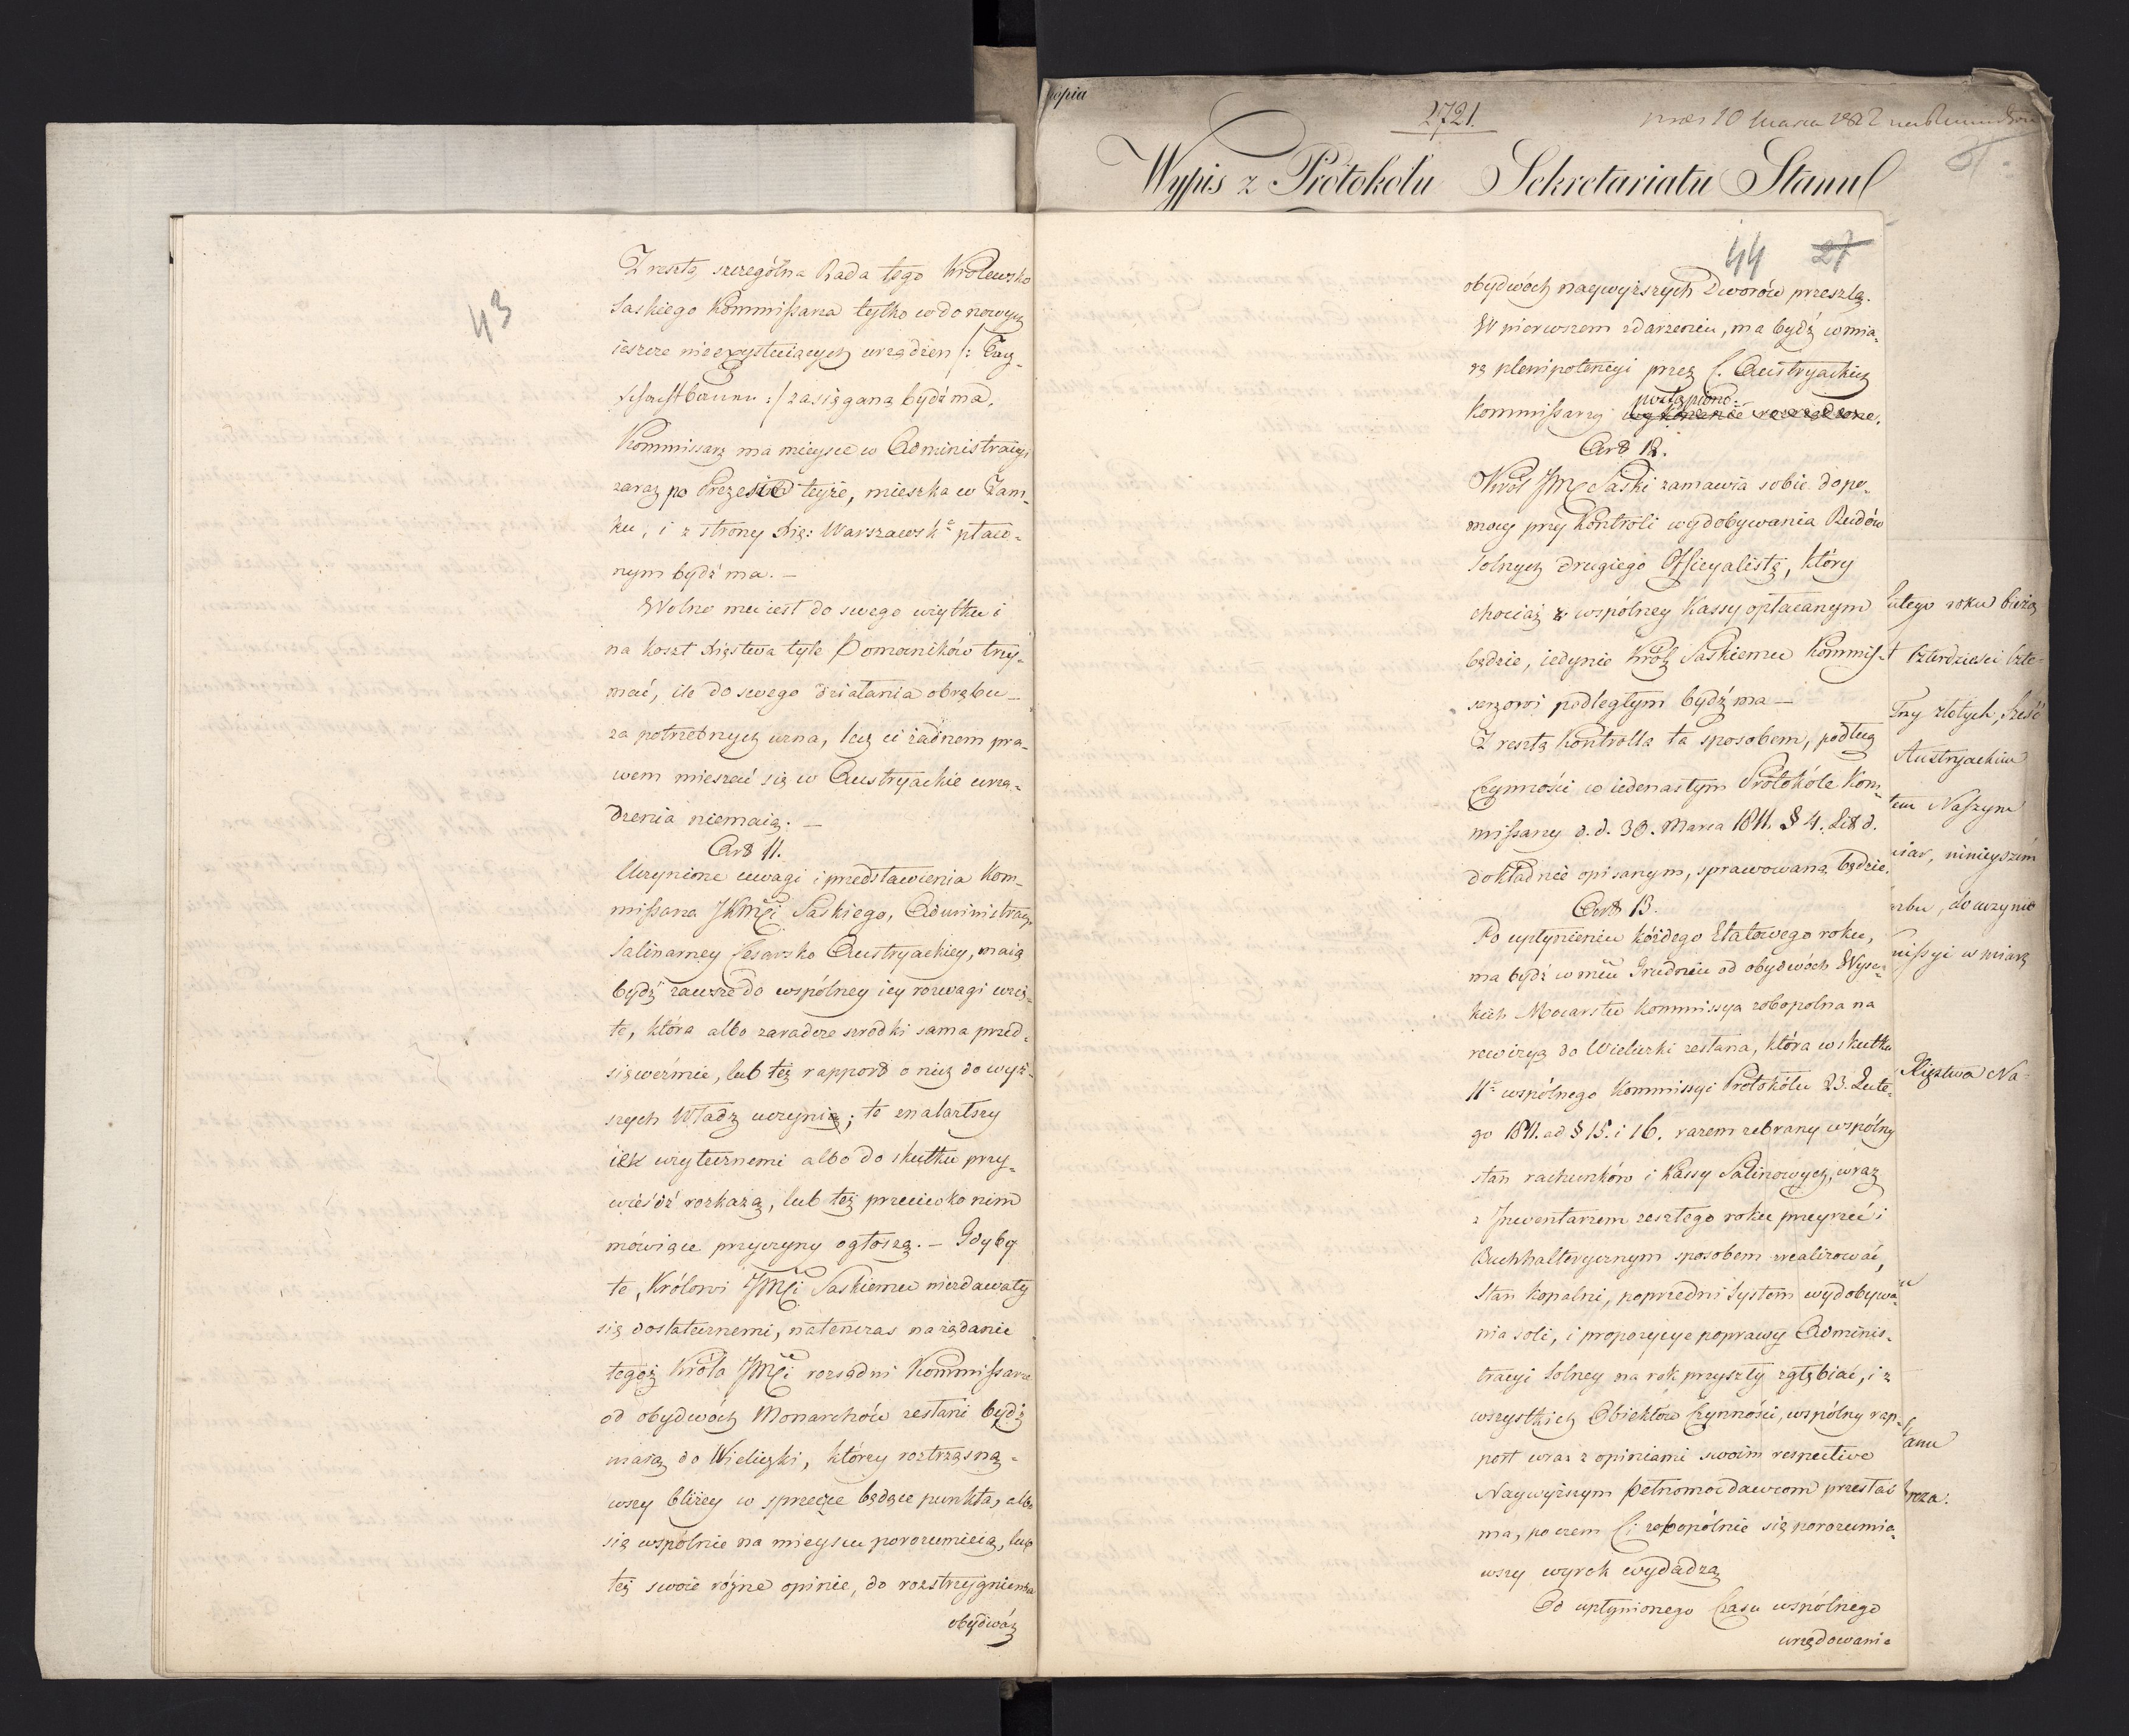 43
Z resztą szczególna Rada tego Królewsko
Saskiego Kommissarza tylko w do nowych
ieszcze nieexystuiących urządzeń /:
:/ zasiągana bydź ma.
Kommissarz ma mieysce w Administracyi
zaraz po Prezesie teyże, mieszka w Zam-
ku, i z strony Xię: Warszawsko płaco-
nym bydź ma. —
Wolno mu iest do swego użytku i
na koszt Xięstwa tyle Pomocników trzy-
mać, ile do swego działania obrębu —
za potrzebnych uzna, lecz ci żadnem pra-
wem mieszać się w Austryackie urzą-
dzenia niemaią. —
Art 11.
Uczynione uwagi i przedstawienia Kom-
missarza JKMci Saskiego, Administracyi
Salinarney Cesarsko Austryackiey, maią
bydź zawsze do wspólney iey rozwagi wzię-
te, która albo zaradcze szrodki sama przed-
sięweźmie, lub też rapport o nich do wyż-
szych Władz uczynią; te znalazłszy
iek użytecznemi albo do skutku przy-
wieśdź rozkażą, lub też przeciwko nim
mówiące przyczyny ogłoszą. — Gdyby
te, Królowi JMCi Saskiemu niezdawały
się dostatecznemi, natenczas na żądanie
tegoż Króla JMCi rozsądni Kommissarze
od obydwóch Monarchów zesłani bydź
maią do Wieliczki, którzy roztrząsną-
wszy bliżey w sprzecze będące punkta, albo
się wspólnie na mieyscu porozumieią, lub
też swoie różne opinie, do rozstrzygnienia
obydwóch
kopia
2721.
10 Marca 1812
Wypis z Protokołu Sekretariatu Stanu
44 27
obydwóch naywyższych Dworów przeszlą.
W pierwszem zdarzeniu, ma bydź w mia-
rę plenipotencyi przez C. Austryackich
postąpiono.
Kommissarzy
Art 12.
Król JMC Saski zamawia sobie do po-
mocy przy Kontroli wydobywania Rudów
Solnych drugiego Officyalistę, który
chociaż z wspólney Kassy opłacanym
będzie, iedynie Król Saskiemu Kommis-
sarzowi podległym bydź ma —
Z resztą Kontrolla ta sposobem, podług
Czynności w iedenastym Protokóle Kom-
missarzy d. d. 30. Marca 1811. § 4. Lit d.
dokładnie opisanym, sprawowana będzie.
Art 13.
Po upłynieniu każdego Etatowego roku,
ma bydź w mcu Grudniu od obydwóch Wyso-
kich Mocarstw Kommissya zobopolna na
rewizyą do Wieliczki zesłana, która w skutku
11o wspólnego Kommissyi Protokółu 23. Lute-
go 1811. ad § 15. i 16. razem zebrany wspólny
stan rachunków i Kassy Salinowych, wraz
z Inwentarzem zeszłego roku przeyrzeć i
Buchhalterycznym sposobem zrealizować,
Stan Kopalni, poprzedni System wydobywa-
nia soli, i propozycye poprawy Adminis-
tracyi Solney na rok przyszły zgłębiać, i z
wszystkich Obiektów Czynności, wspólny rap-
port wraz z opiniami swoim respective
Naywyższym Pełnomocdawcom przesłać
ma, poczem Ci zobopólnie się porozumia-
wszy wyrok wydadzą
Od upłynionego Czasu wspólnego
urzędowania
Lutego roku bieżą
Czterdzieści Czte-
złotych, Sześć
Austryackim
Naszym
ninieyszem
do uczynie
w miarę
Xięztwa Na-